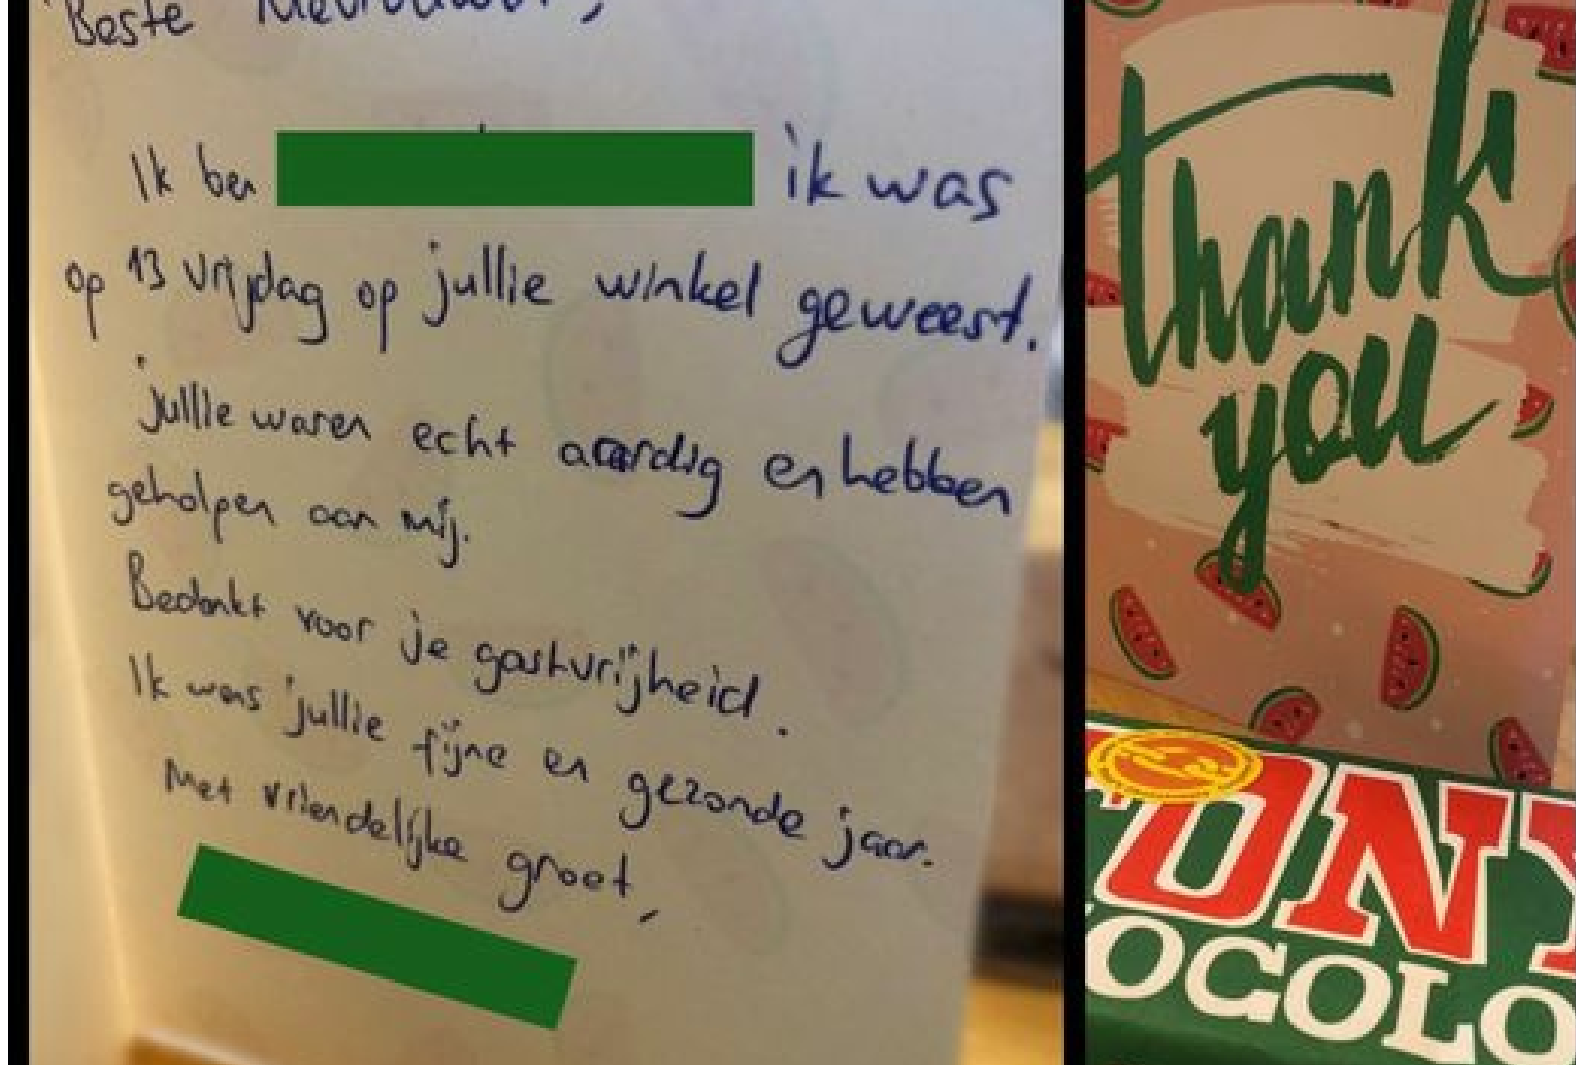 Beste
Ik ben ik was
op 13 vrijdag op jullie winkel geweest.
jullie waren echt aardig en hebben
geholpen aan mij.
Bedankt voor je gastvrijheid.
Ik wens jullie fijne en gezonde jaar.
Met vriendelijke groet,
thank
you
TONY
OCOLO